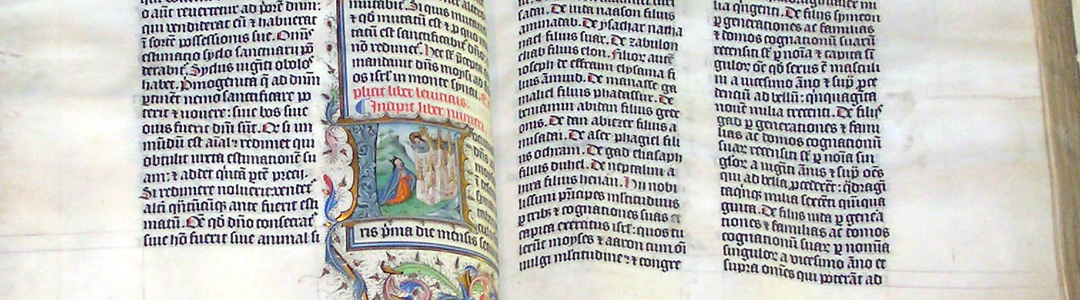 o aut reverterit ad pꝛm dnm:
qui vendiderat eū ⁊ habuerat
ī soꝛte possessionis sue. Om̄s
estimatio syclo sanctuarij pō
derabit̄. Syclus viginti obolos
habet. Pꝛimogenita q̄ ad dnm
ptinēt nemo sanctificare po
terit ⁊ vovere: sive bos sive
ovis fuerit dn̄i sūt. Qꝛ si im
mūdū est aīal: redimet qui
obtulit iuxta estimationē su
am: ⁊ addet quītā ptē precij.
Si redimere noluerit: vendet
alti quātūcūqꝫ ante fuerit esti
matū. Om̄e qd dn̄o consecrat̄
sive hō fuerit sive animal si
mutabit. Si quis mutaverit
⁊ qd mutatū est ⁊ p quo mu
tatū est sanctificabit̄ dn̄o ⁊
nō redimet̄. Hec sūt pcepta que
mandavit dn̄s moysi ad fili
os isrl in monte synai. Ex
plicit liber leviticus.
Incipit liber numeri
ris pīma die mensis secundi
safai. De iuda naason filius
aminadab. De ysachar natha
nael filius suar. De zabulon
eliab filius elon. Filioꝛ aute
ioseph de effraim elysama fi
lius amiud. De manasse ga
maliel filius phadassur. De
beniamin abidan filius gede
onis. De dan ahiezer filius a
misadai. De aser phagiel fili
us ochran. De gad eliasaph
filius duhel. De neptalim a
hira filius henan. Hij nobi
lissimi pīncipes mltitudinis
p tribꝰ ⁊ cognationes suas et
capita exercitus isrl: quos tu
lerūt moyses ⁊ aaron cum om̄i
vulgi mltitudine: ⁊ congre
De filijs symeon
p generationes ac familias
⁊ domos cognationū suarū
recensiti sūt p noīa ⁊ capita sī
guloꝛ om̄e qd sexus ē masculi
ni a vicesimo āno ⁊ sup pce
dentiū ad bellū: qnquagīta
novē milia trecenti. De filijs
gad p generationes ⁊ fami
lias ac domos cognationū
suaꝛ recensiti sūt p noīa sin
guloꝛ a viginti ānis ⁊ sup om̄s
qui ad bella pcederēt: qdragī
taqnqꝫ milia sexcēti qnqua
ginta. De filijs iuda p genera
tiones ⁊ familias ac domos
cognationū suaꝛ p nomīa
singuloꝛ a vicesimo āno et
supra om̄es qui poterāt ad